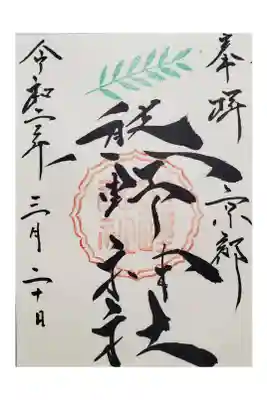 奉拝 京都
熊野神社
令和二年 三月二十日